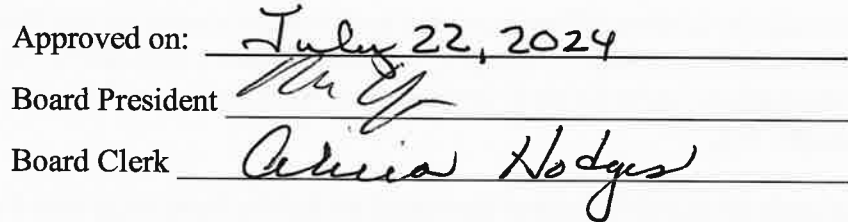 Approved on: July 22, 2024
Board President
Board Clerk Alicia Hodges